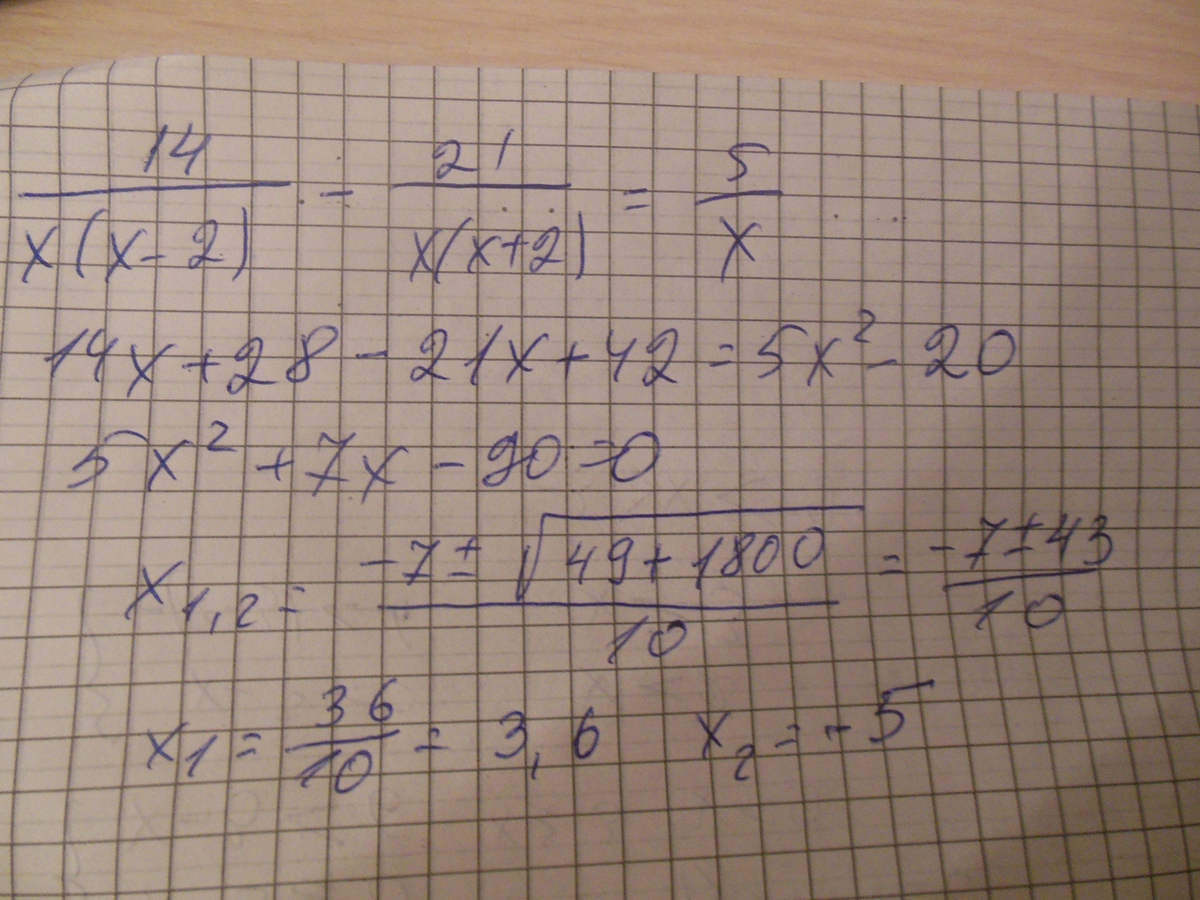 14/x(x-2) - 21/x(x+2) = 5/x
14x+28-21x+42=5x²-20
5x²+7x-90=0
x1,2= -7±√49+1800/10 = -7±43/10
x1=36/10=3,6 x2=-5